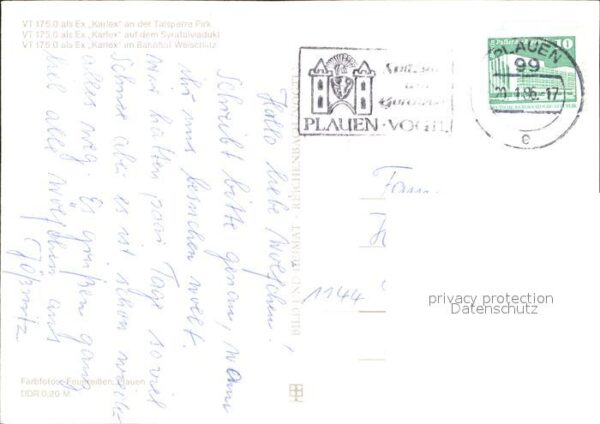 VT 175.0 als Ex „Karlex“ an der Talsperre Pirk
VT 175.0 als Ex „Karlex“ auf dem Syratalviadukt
VT 175.0 als Ex „Karlex“ im Bahnhof Weischlitz
Hallo liebe Wölfchen!
Schreibt bitte genau, wann
ihr uns besuchen wollt.
Wir hatten paar Tage so viel
Schnee aber es ist schon wieder
alles weg. Es grüßen ganz
alle Wölfchen aus
Jößnitz
Farbfotos: Plauen
DDR 0,20 M
BILD UND HEIMAT REICHENBACH
PLAUEN · VOGTL
PLAUEN
99
20.1.86-17
e
10
Fam.
1144
privacy protection
Datenschutz